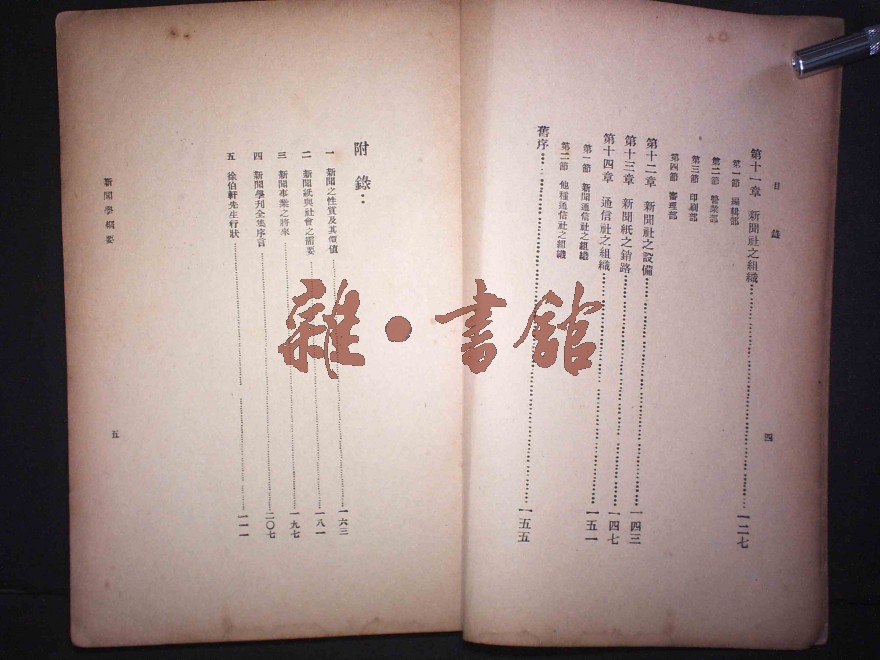 目錄
第十一章 新聞社之組織……一二七
第一節 編輯部
第二節 營業部
第三節 印刷部
第四節 審理部
第十二章 新聞社之設備……一四三
第十三章 新聞紙之銷路……一四七
第十四章 通信社之組織……一五一
第一節 新聞通信社之組織
第二節 他種通信社之組織
舊序……一五五
四
附錄：
一 新聞之性質及其價值……一六三
二 新聞紙與社會之需要……一八一
三 新聞事業之將來……一九七
四 新聞學刊全集序言……二〇七
五 徐伯軒先生行狀……二一一
新聞學綱要
五
雜·書館